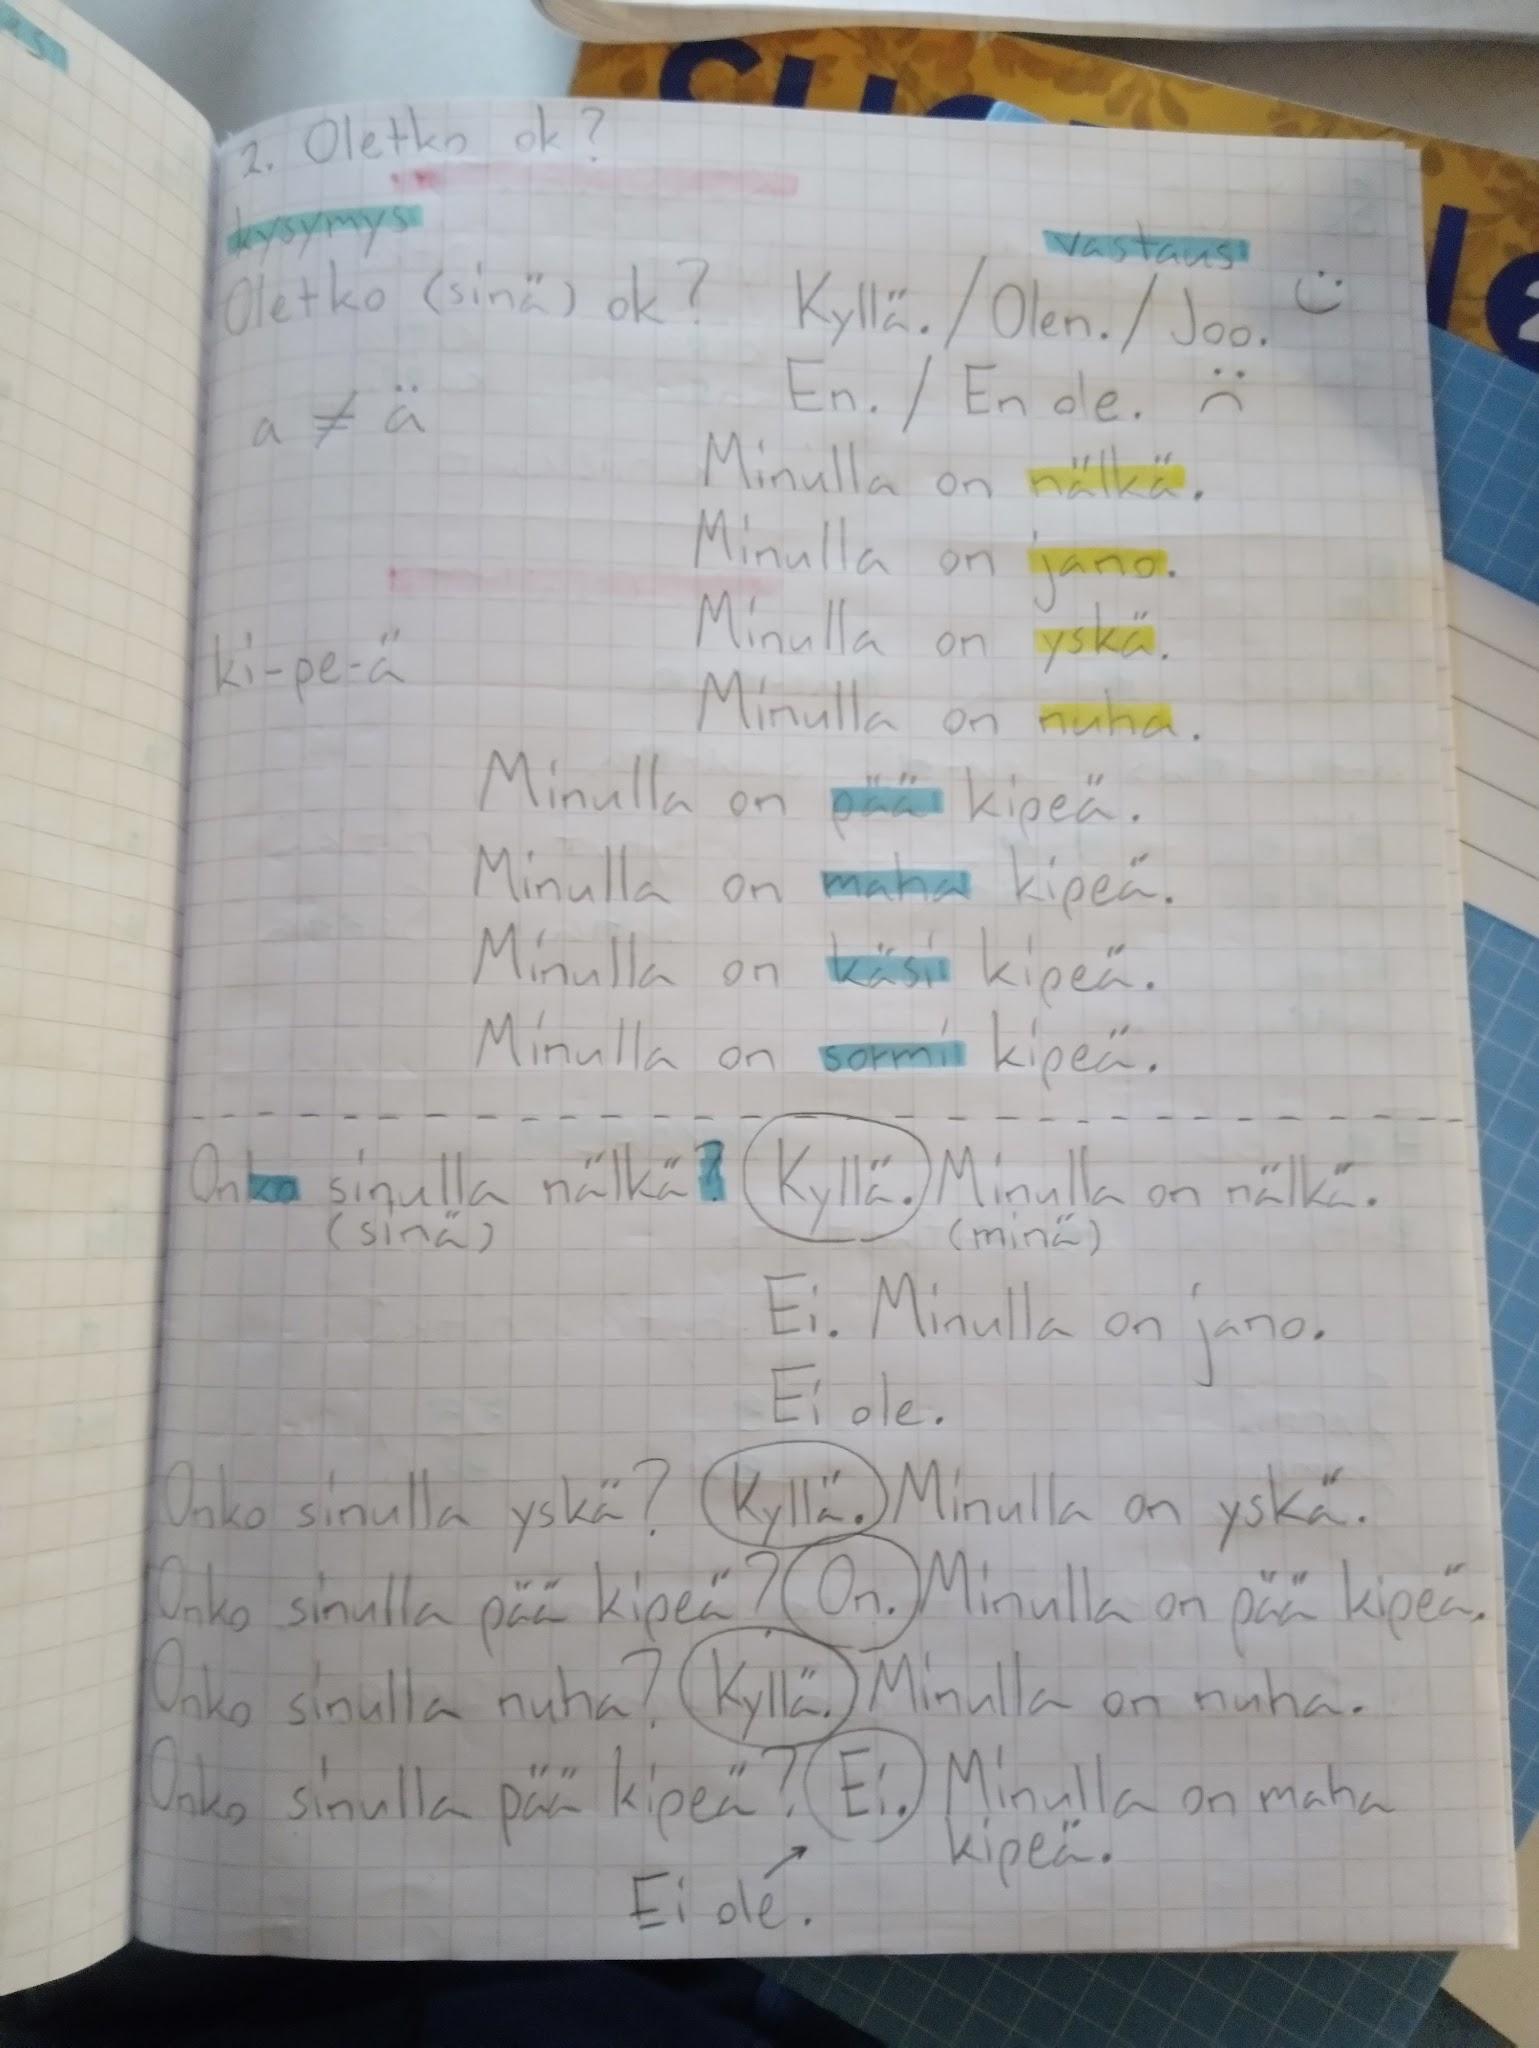 2. Oletko ok?
kysymys
vastaus
Oletko (sinä) ok? Kyllä. / Olen. / Joo.
En. / En ole.
a ≠ ä
Minulla on nälkä.
Minulla on jano.
Minulla on yskä.
ki-pe-ä
Minulla on nuha.
Minulla on pää kipeä.
Minulla on maha kipeä.
Minulla on käsi kipeä.
Minulla on sormi kipeä.
Onko sinulla nälkä? Kyllä. Minulla on nälkä.
(sinä) (minä)
Ei. Minulla on jano.
Ei ole.
Onko sinulla yskä? Kyllä. Minulla on yskä.
Onko sinulla pää kipeä? On. Minulla on pää kipeä.
Onko sinulla nuha? Kyllä. Minulla on nuha.
Onko sinulla pää kipeä? Ei. Minulla on maha
kipeä.
Ei ole.